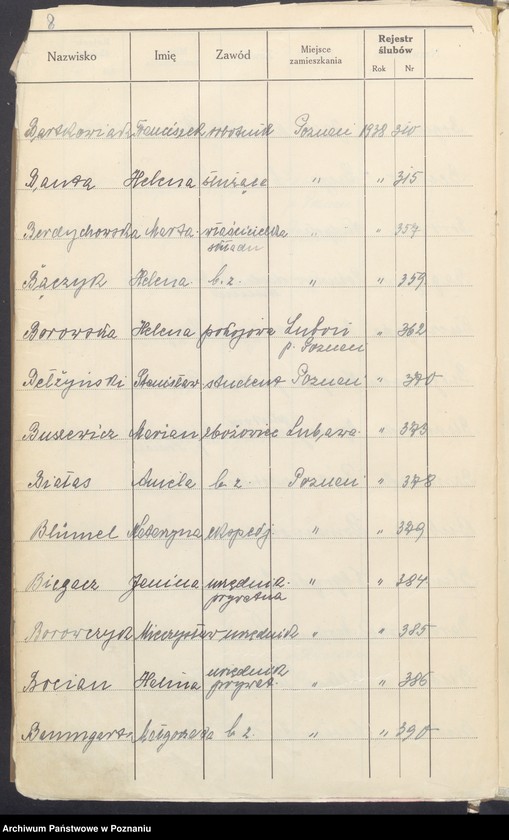 8
Nazwisko Imię Zawód Miejsce zamieszkania Rejestr ślubów Rok Nr
Bartkowiak Franciszek robotnik Poznań 1938 310
Banta Helena służące " " 315
Berdychowska Marta właścicielka składu " " 357
Bączyk Helena b. z. " " 359
Borowska Helena pokojowa Luboń p. Poznań " 362
Bełżyński Stanisław student Poznań " 370
Busewicz Marian zbożowiec Lubawa " 373
Białas Aniela b. z. Poznań " 378
Blümel Katarzyna ekspedj. " " 379
Biegacz Janina urzędnic. prywatna " " 384
Borowczyk Mieczysław urzędnik " " 385
Bocian Helena urzędnik prywat. " " 386
Baumgart Małgorzata b. z. " " 390
Archiwum Państwowe w Poznaniu